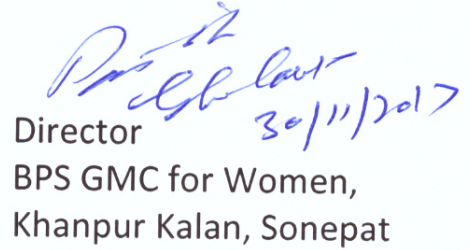 30/11/2017
Director
BPS GMC for Women,
Khanpur Kalan, Sonepat